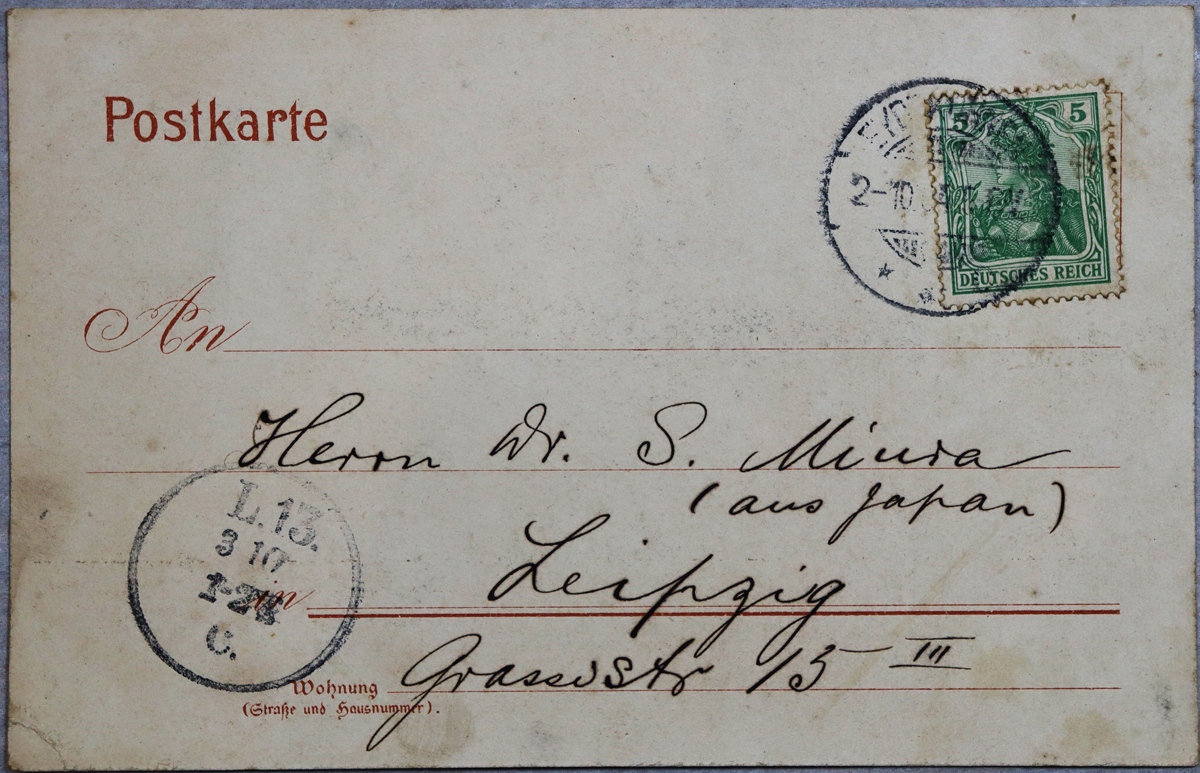 Postkarte
5 5
2-10
DEUTSCHES REICH
An
Herrn Dr. S. Miura
(aus Japan)
L.13.
3 10
1-2
C.
in Leipzig
Grassistr 15 III
Wohnung
(Straße und Hausnummer).